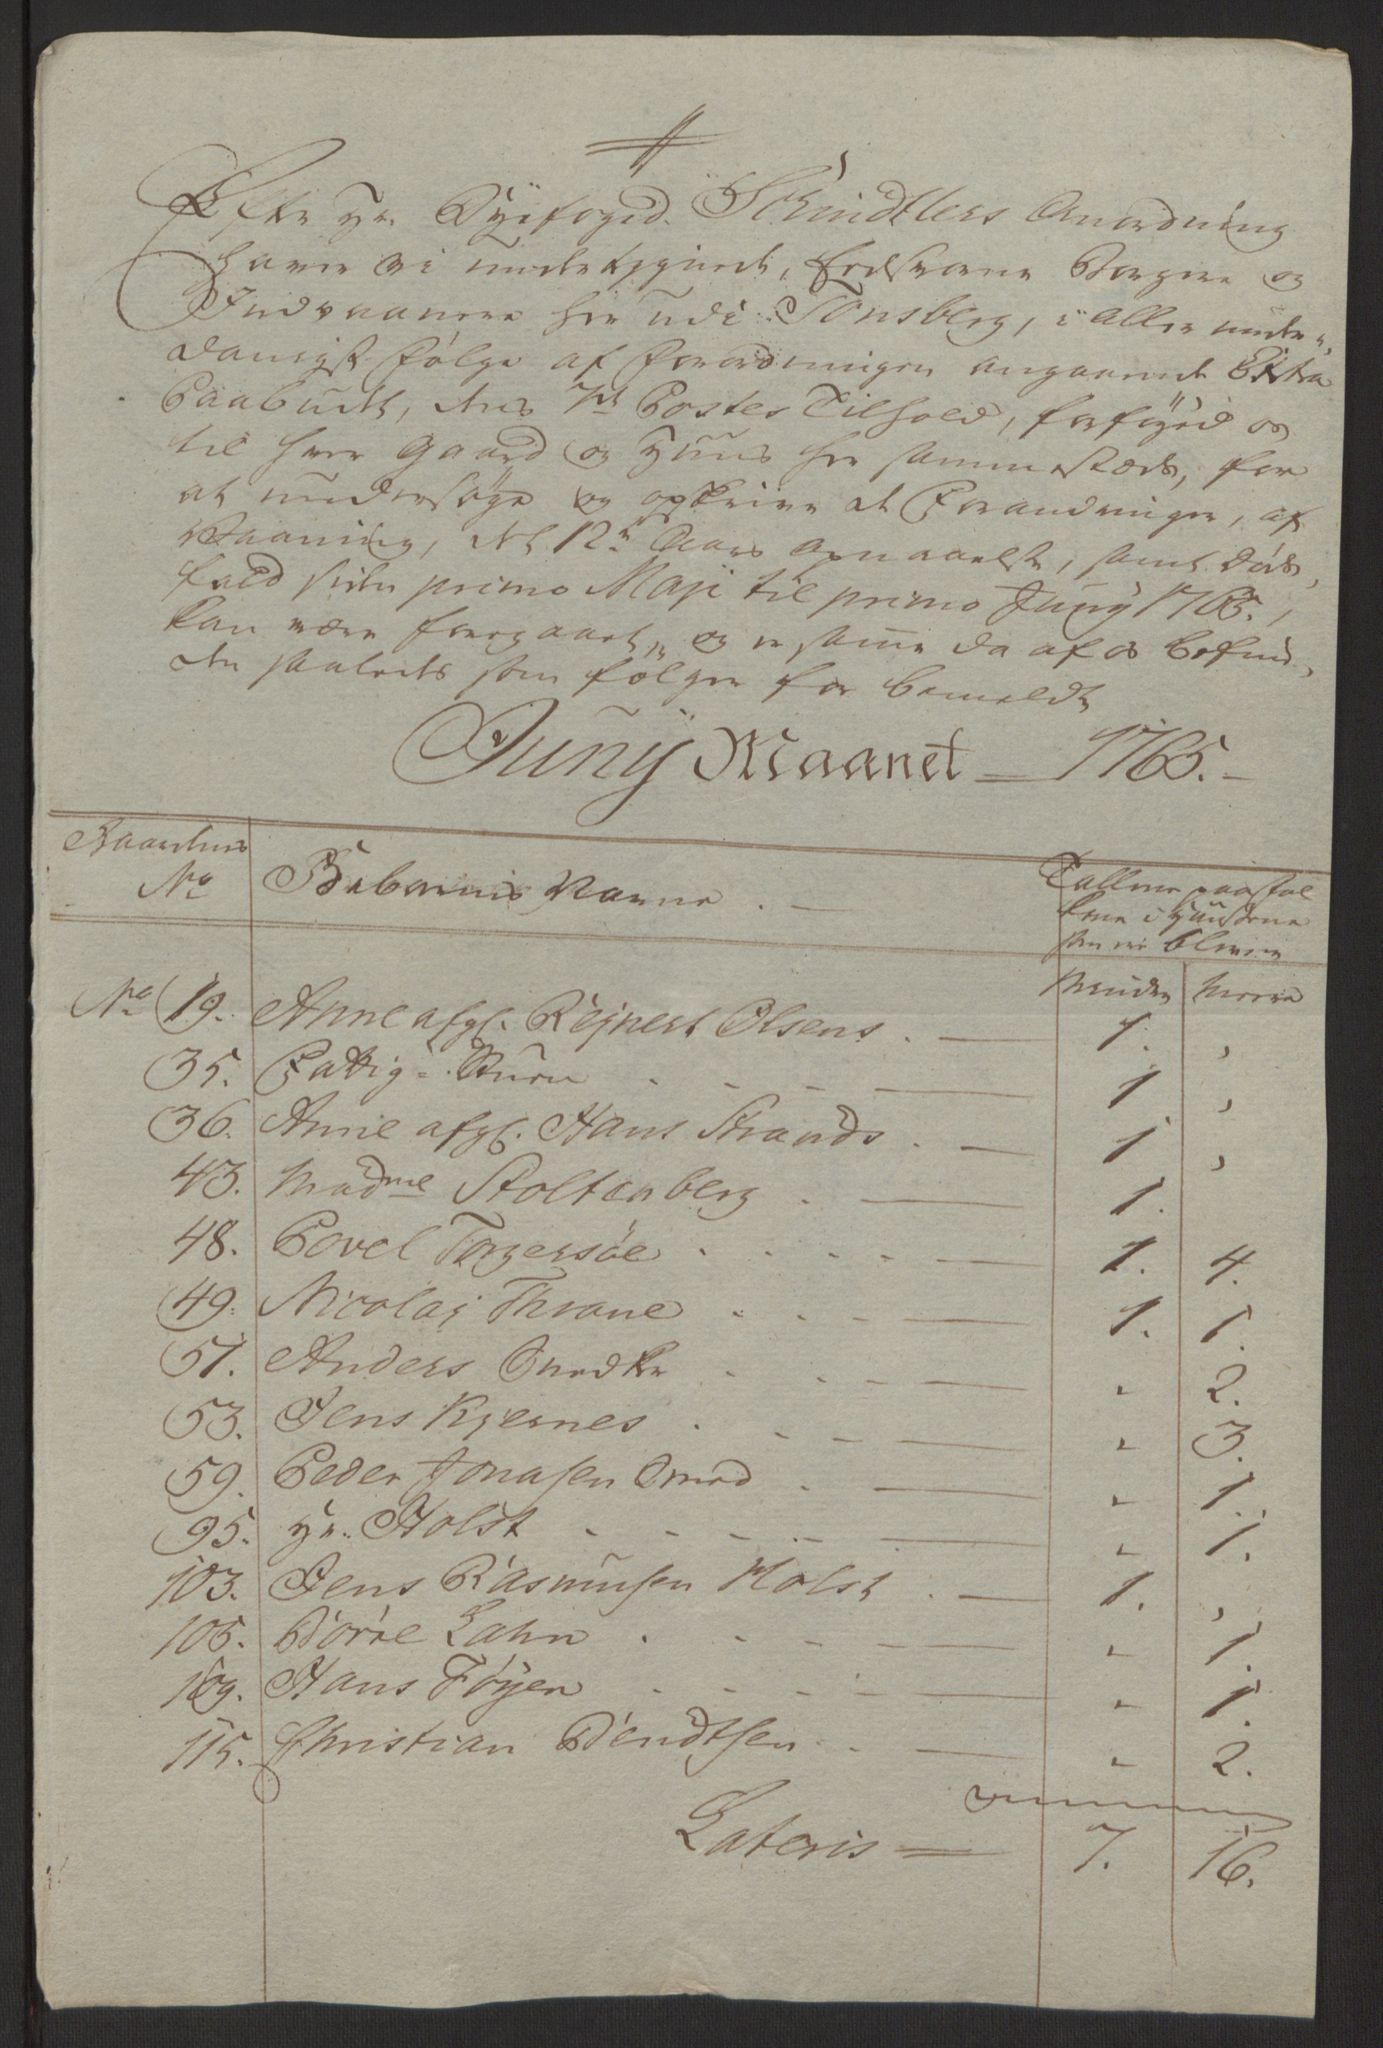 Efter Hr. Byefoged Schindtlers Anordning
haver vi underteignede, Eedsvorne Borgere og
Indvaanere her udi Tønsberg, i aller under-
danigst følge af Forordningen angaaende Extra
Paabudet, dens 7de Postes Tilhold, forføyed os
til hver Gaard og Huus her sammesteds, for
at undersøge og opskrive de Forandringer, af
12te Aars samt døds-
fald siden primo Maji til primo Junÿ 1765,
kan være foregaaet, og er samme da af os befun-
den saaledes som følger for bemeldte
Junÿ Maanet 1765.
Gaardenes
No
Beboernis Navne
Tallene paa fol
kene i Husene
som ere bleven
Mindre Meere
No 19. Anne afgl. Rejnert Olsens 1. ,
35. Fattig-Stuen 1 ,
36. Anne afgl. Hans Strands 1 ,
43. Madme Stoltenberg 1.
48. Povel Torgersøe 1. 4.
49. Nicolaj Thrane 1. 1.
51. Anders Snedker " 2.
53. Jens Kjernes " 3.
59. Peder Jonasen Smed " 1.
95. Hr. Holst " 1.
103. Jens Rasmusen Holst 1. ,
105. Børre Lahn " 1.
109. Hans Føÿen " 1.
115. Christian Bendtsen " 2.
Lateris 7. 16.